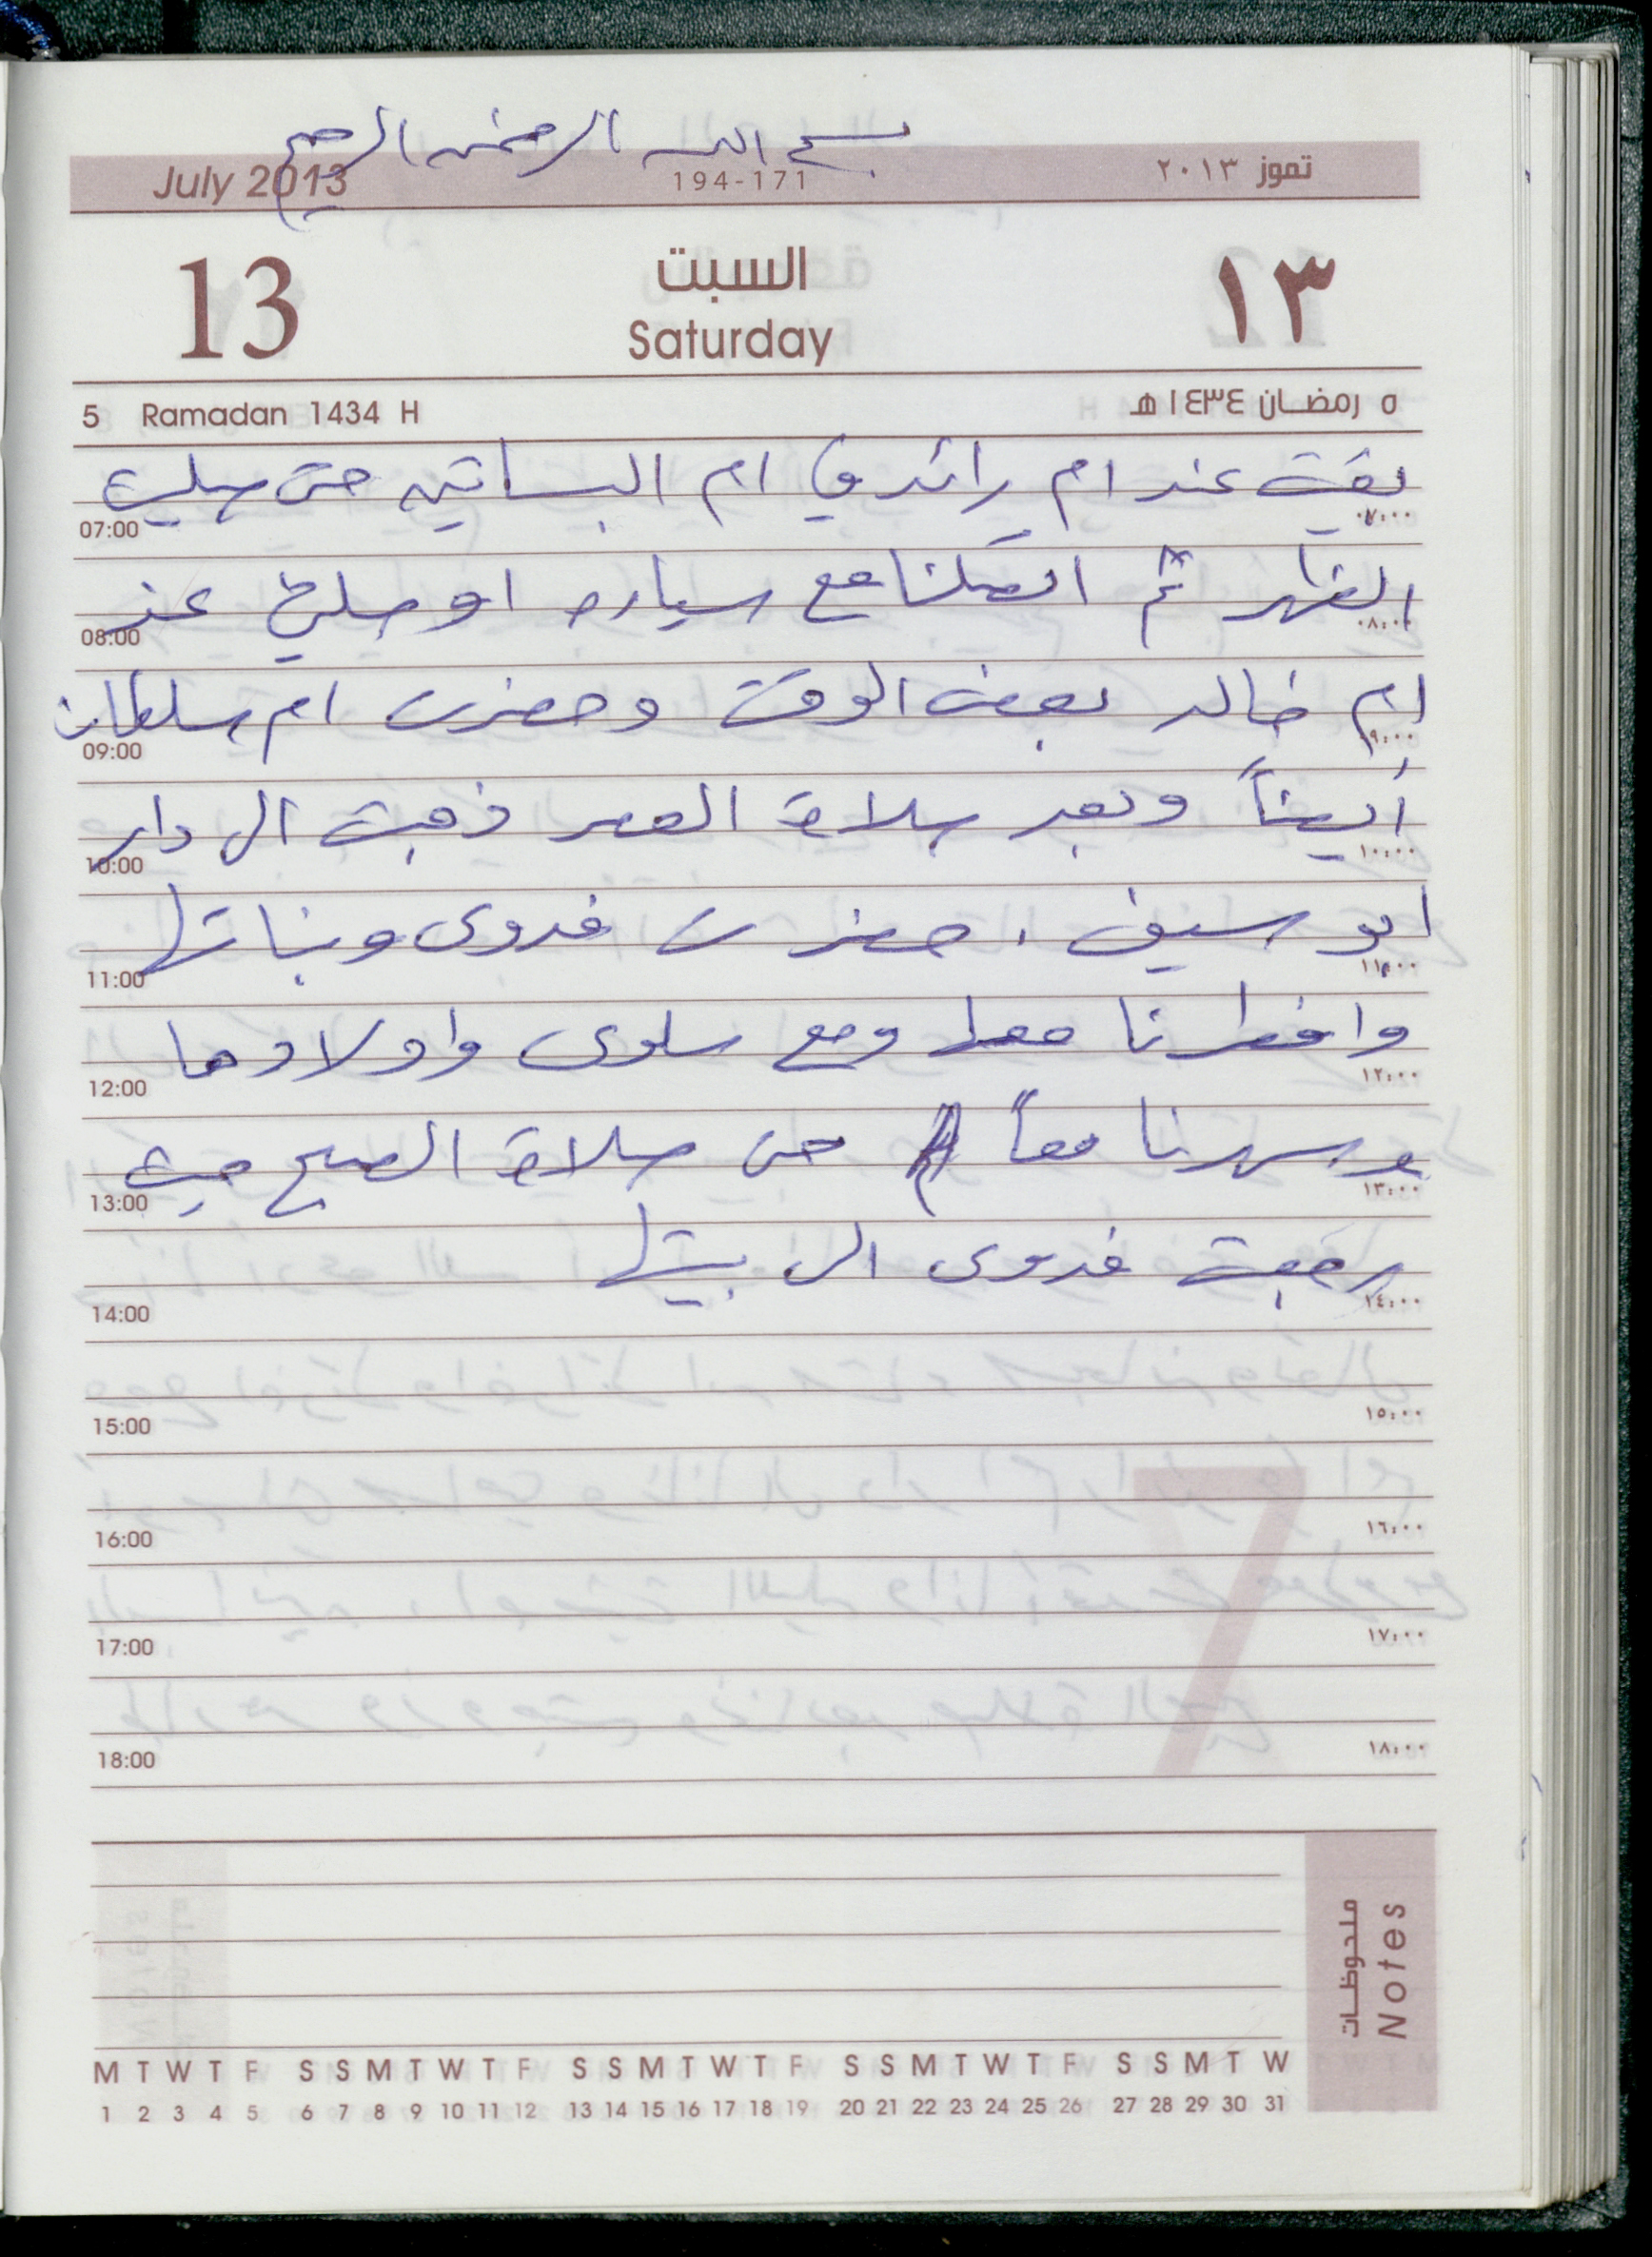 بسم الله الرحمن الرحيم
July 2013 194-171 تموز ٢٠١٣
13 السبت ١٣
Saturday
5 Ramadan 1434 H ٥ رمضان ١٤٣٤ هـ
بقيت عند ام رائد في ام البساتين حتى صليت
07:00 ٠٧:٠٠
الظهر ثم اتصلنا مع سياره اوصلتني عند
08:00 ٠٨:٠٠
ام خالد بعض الوقت وحضرت ام سلطان
09:00 ٠٩:٠٠
أيضاً وبعد صلاة العصر ذهبت الى دار
10:00 ١٠:٠٠
ابو سيف . حضرت فدوى وبناتها
11:00 ١١:٠٠
وافطرنا معا ومع سلوى واولادها
12:00 ١٢:٠٠
وسهرنا معاً حتى صلاة الصبح حيث
13:00 ١٣:٠٠
رجعت فدوى الى بيتها
14:00 ١٤:٠٠
15:00 ١٥:٠٠
16:00 ١٦:٠٠
17:00 ١٧:٠٠
18:00 ١٨:٠٠
ملحوظات
Notes
M T W T F S S M T W T F S S M T W T F S S M T W T F S S M T W
1 2 3 4 5 6 7 8 9 10 11 12 13 14 15 16 17 18 19 20 21 22 23 24 25 26 27 28 29 30 31